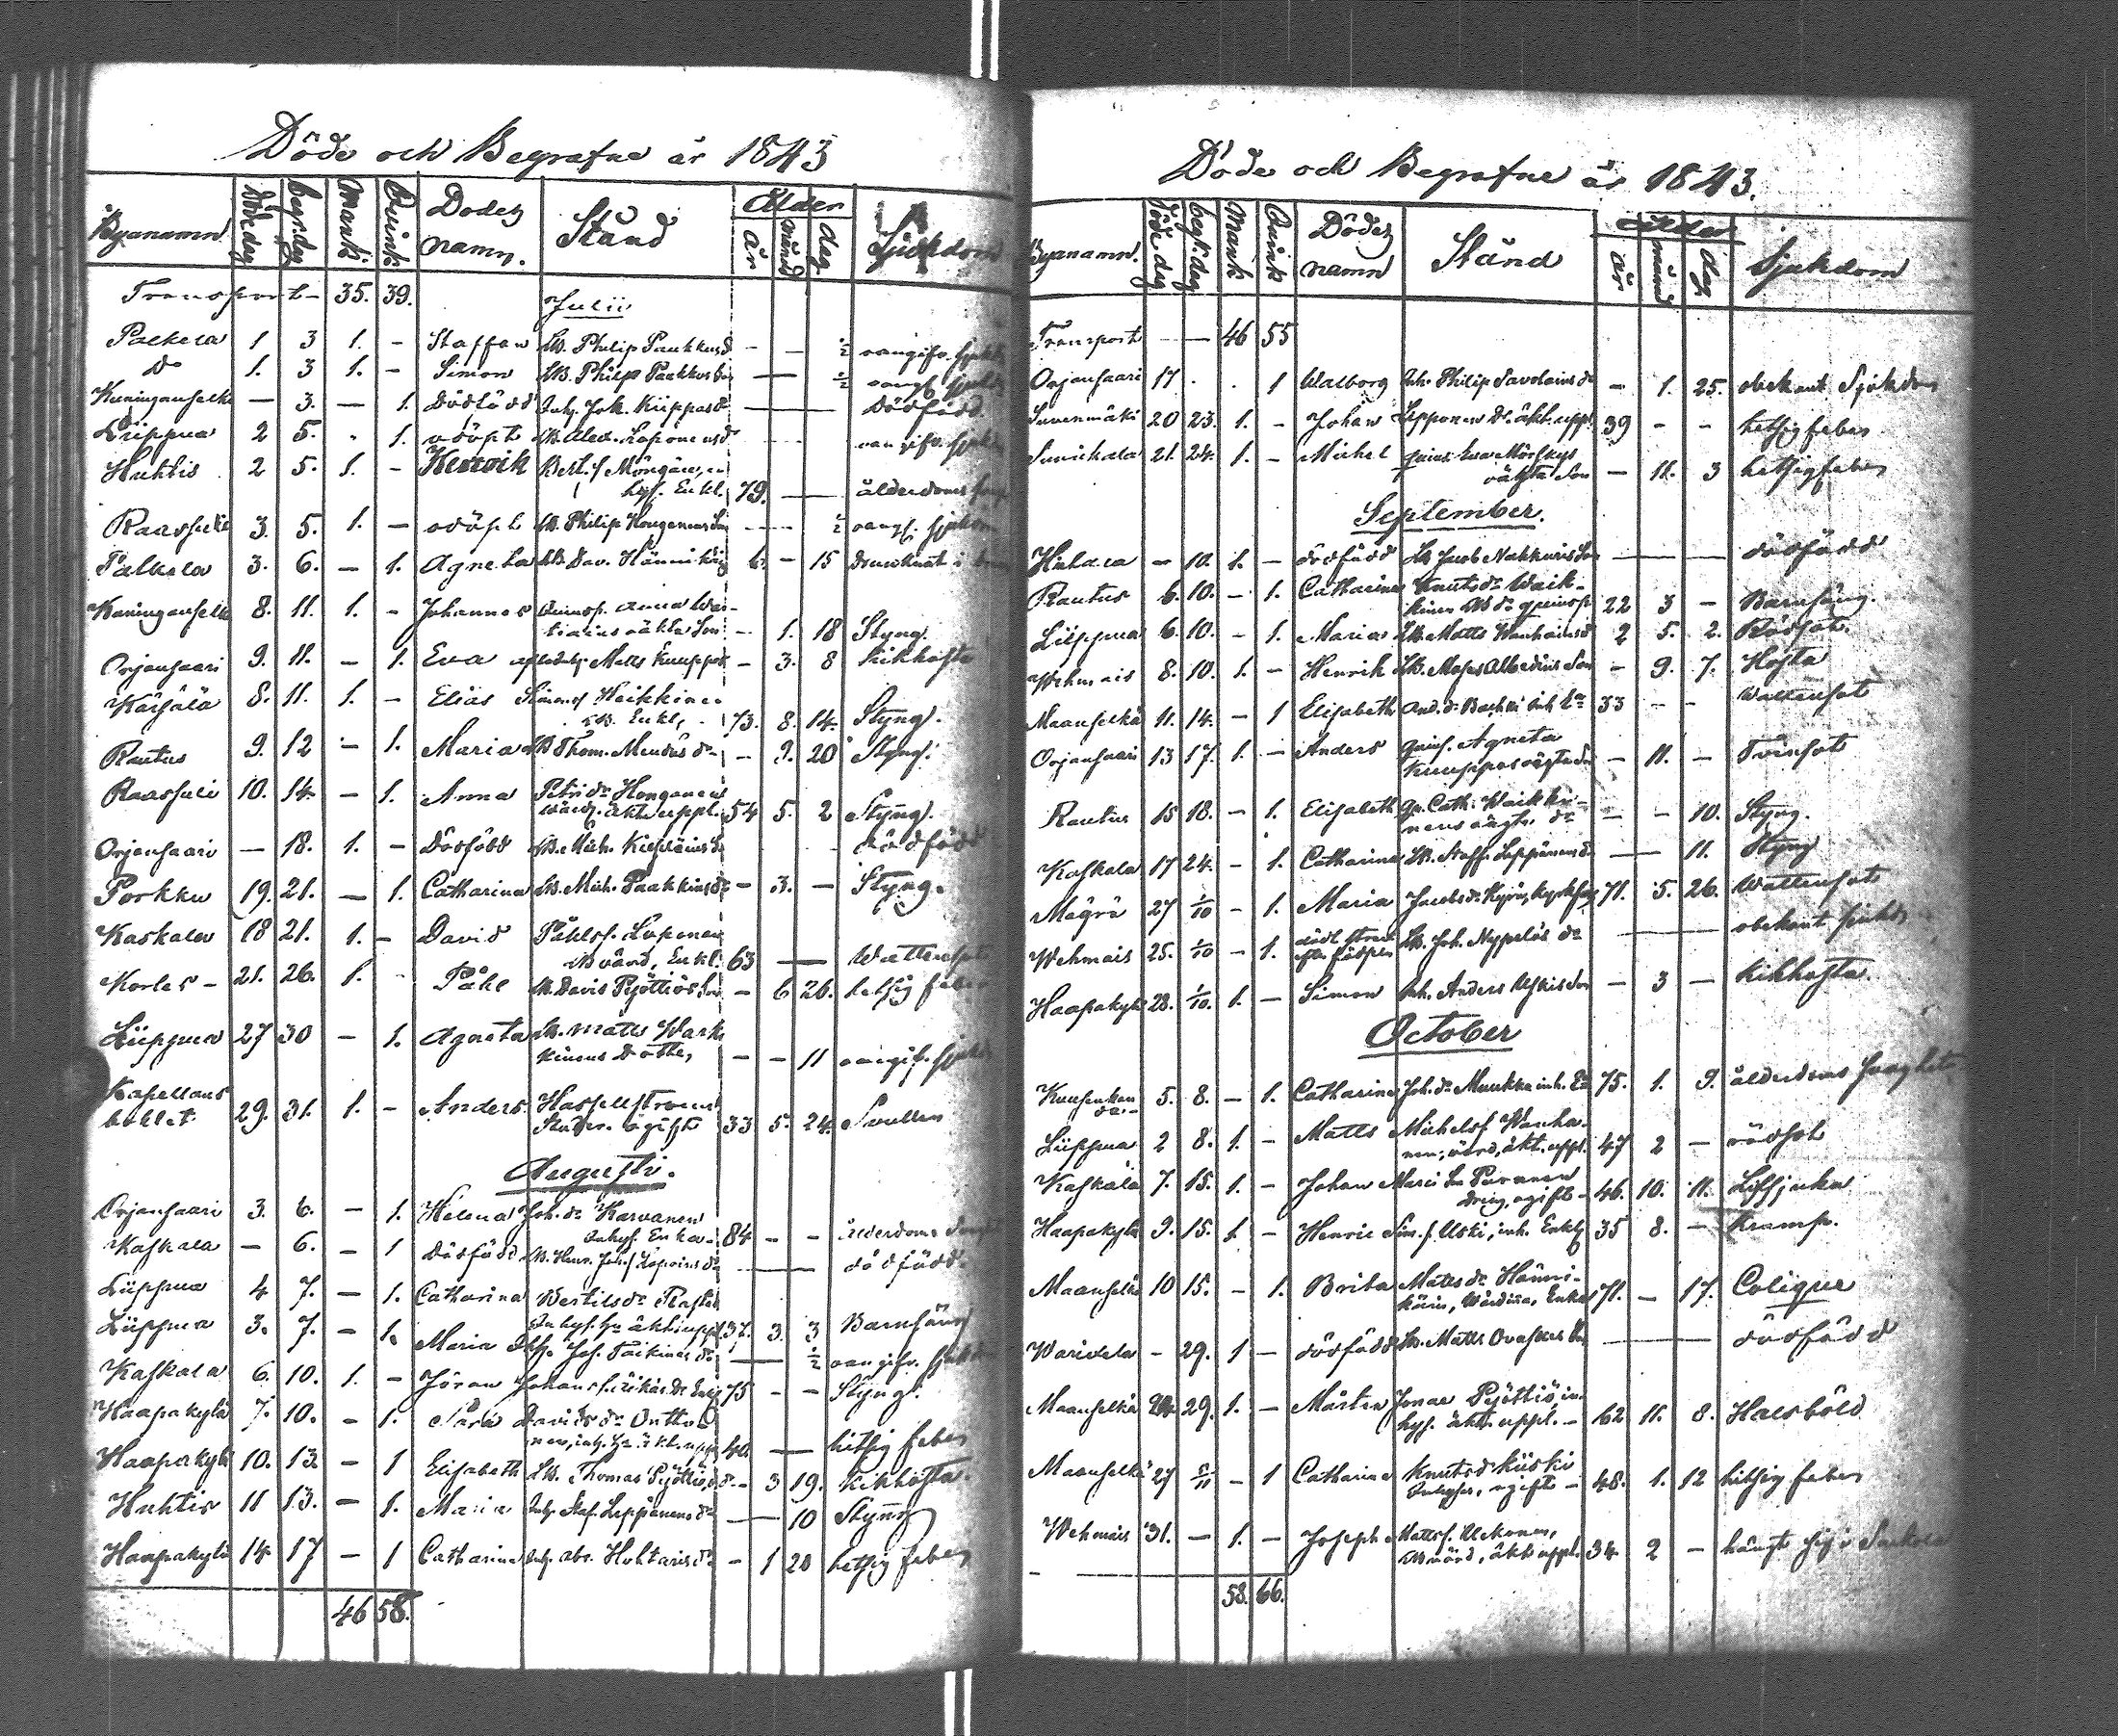 Döde och Begrafne år 1843
Byanamn. Döde dag begr. dag Mank. Quink. Dödez namn. Stånd Ålder år månd dag Sjukdom
Transport - 35. 39.
Julii
Palkela 1 3 1. - Staffan LB. Philip Paukkus - - ½ oangifv. sjukd
Do 1. 3 1. - Simon LB. Philip Paakkus Son - ½ oangf. sjukd
Kuninganselke - 3. - 1. Dödfödd Inh. Joh. Kiippas dr - Dödfödd
Liippua 2 5. - 1. odöpt LB. Alex. Loponens dr - oangifv. sjukd
Huhtis 2 5. 1. - Henrik Bert. s
hys. Enkl. 79. - ålderdoms
Raasuli 3. 5. 1. - odöpt LB. Philip Hongonens Son - ½ oangf. sjukdom
Palkela 3. 6. - 1. Agneta LB. Dav. Hännikäi 6. - 15 drunknat i
Kuninganselke 8. 11. 1. - Johannes Quinsp. Anna
oäkta Son - 1. 18 Styng.
Orjansaari 9. 11. - 1. Eva Inh. Matts Kuuppas - 3. 8 Kikhosta
Käisälä 8. 11. 1. - Elias Simons Heikkinen
LB. Enkl. 73. 8. 14. Styng.
Rautus 9. 12 - 1. Maria LB Thom. Mendus dr - 9. 20 Styng.
Raasuli 10. 14. - 1. Anna Petri dr Hongonen
värd. äkta uppl. 54 5. 2 Styng.
Orjansaari - 18. 1. - Dödfödd LB. Mich. - dödfödd
Porkku 19. 21. - 1. Catharina LB. Mich. Paakkins dr - 3. - Styng.
Kaskala 18 21. 1. - David Påhls. Loponen
LB värd, Enkl. 63 - Wattensot
Korles - 21. 26. 1. - Påhl LB. David Pyöttiös Son - 6 26. hetsig feber
Liippua 27 30 - 1. Agneta LB. Matts Wark
kinens Dotter, - - 11 oangif. sjukd
Kapellans
bohlet 29. 31. 1. - Anders Hasselströem
Studer. ogift 33 5. 24. Svullen
Augusti.
Orjansaari 3. 6. - 1. Helena Joh. dr Karvanen
Inhys. Enka - 84 - - ålderdoms
Kaskala - 6. - 1 Dödfödd LB. Henr. Joh. s Loponens dr - dödfödd
Liippua 4 7. - 1. Catharina Bertils dr
Inhys. hu äkta uppl. 37. 3. 3 Barnsäng
Liippua 3. 7. - 1. Maria Inh. Jos. Taikinas dr - ½ oangifv. sjukd
Kaskala 6. 10. 1. - Jöran Johans s Enkl 75 - - Styng.
Haapakylä 7. 10. - 1. Sara Davids dr Outto
nen, inh. hu. äkt. upp 40 - hitsig feber
Haapakylä 10. 13. - 1 Elisabeth LB. Thomas Pyöttiös dr - 3 19. Kikhosta.
Huhtis 11 13. - 1. Maria Inh. Staf. Leppänens dr - 10 Styng
Haapakylä 14. 17 - 1 Catharina Inh. Abr. Huhtaris dr - 1 20 hetsig feber
46 58.
Döde och Begrafne år 1843.
Byanamn. Döde dag begr. dag Mank. Quink Dödez namn Stånd Ålder år månd dag Sjukdom
Transport - - 46 55
Orjansaari 17 . . 1 Walborg Inh. Philip Savolains dr - 1. 25. obekant Sjukdom
Suvenmäki 20 23. 1. - Johan Lepponen Dr äkt. uppl. 39 - - hetsig feber
Sunikala 21. 24. 1. - Michel quins. Eva Mörskys
oägta Son - 11. 3 hetsig feber
September.
Huhala - 10. 1. - dödfödd LB Jacob Nakkaris Son - dödfödd
Rautus 6. 10. - 1. Catharina Knuts dr Waik-
kinen LB dr quinsp. 22 3 - Barnsäng.
Liippua 6. 10. - 1. Maria LB. Matts Wanhains dr 2 5. 2. Rödsot.
Wehmais 8. 10. 1. - Henrik LB. Moses Alberdius Son - 9. 7. Hosta
Maanselkä 11. 14. - 1 Elisabeth And. dr inh. En 33 - - Wattensot
Orjansaari 13 17. 1. - Anders Quins. Agneta
Kuuppas oägte - 11. - Tvinsot
Rautus 15 18. - 1. Elisabeth Qv. Cath. Waikki-
nens oägta dr - - 10. Styng.
Kaskala 17 24. - 1. Catharina LB. Staff. Leppänens dr - 11. Styng
Mägrä 27 1/10 - 1. Maria Jacobs dr 71. 5. 26. Wattensot
Wehmais 25. 1/10 - 1. LB. Joh. Nyppelös dr - obekant sjukd.
Haapakylä 28. 1/10. 1. - Simon Inh. Anders Uskis Son - 3 - Kikhosta.
October
Kuusenkan
da - 5. 8. - 1. Catharina Joh. dr Muukka inh. En 75. 1. 9. ålderdoms svaghet
Liippua 2 8. 1. - Matts Michels s Wanha-
nen, värd, äkt. uppl. 47 2 - rödsot
Kaskala 7. 15. 1. - Johan Marci Sn Puranen
dreng, ogift - 46. 10. 11.
Haapakylä 9. 15. 1. - Henric Sim. s Uski, inh. Enkl 35 8. - Kramp.
Maanselkä 10 15. - 1. Brita Matts dr Hänni-
käin, Wärdina, Enka 71. - 17. Colique
Warivela - 29. 1 - dödfödd LB. Matts Ovaskas Son - dödfödd
Maanselkä 29. 1. - Mårten Jonae Pyöttiö, in-
hys. äkt. uppl. - 62 11. 8. Halsböld
Maanselkä 27 5/11 - 1 Catharina Knuts dr Kiiski
Inhyses, ogift - 48. 1. 12 hitsig feber
Wehmais 31. - 1. - Joseph Matts s. Ukkonen,
LB värd, äkt uppl. 34. 2 - hängt sig i
58. 66.